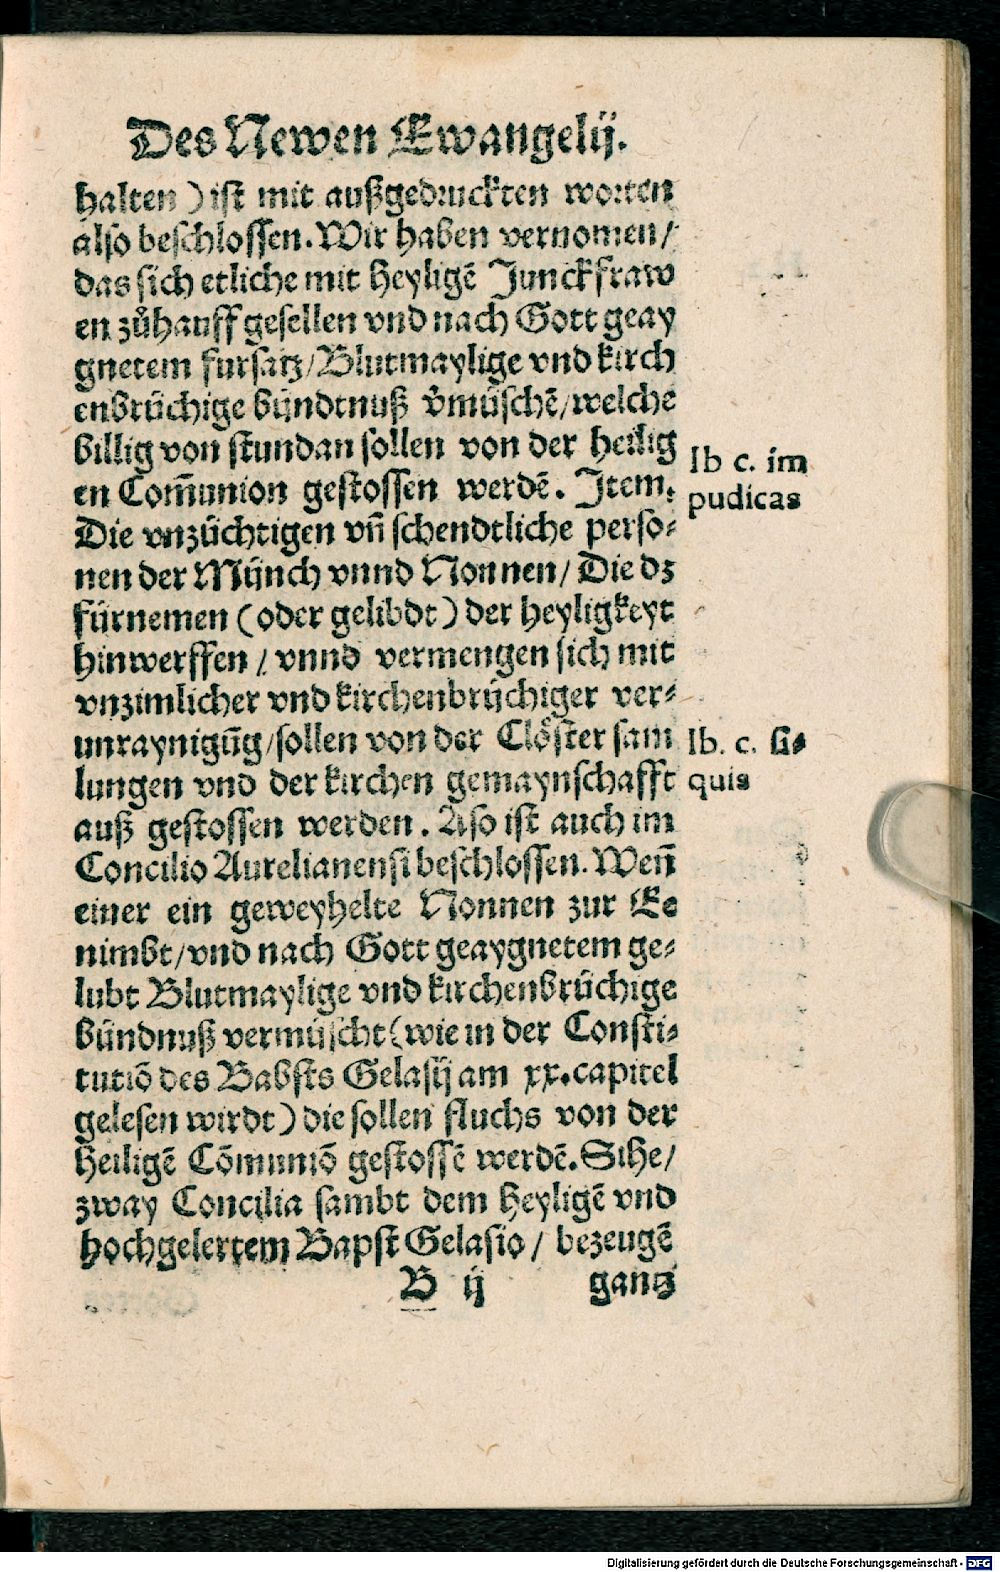 Des Newen Ewangelij.
halten ) ist mit außgedruckten worten
also beschlossen. Wir haben vernomen/
das sich etliche mit Heyligē Junckfraw
en zůhauff gesellen vnd nach Gott geay
gnetem fursatz/Blutmaylige vnd kirch
enbrüchige bündtnuß v̈müschē/welche
billig von stundan sollen von der heilig
en Com̄union gestossen werdē. Item.
Ib c. im
pudicas
Die vnzüchtigen vn̄ schendtliche perso⸗
nen der Mÿnch vnnd Nonnen/ Die dz
fürnemen (oder gelibdt) der heyligkeyt
hinwerffen / vnnd vermengen sich mit
vnzimlicher vnd kirchenbrÿchiger ver⸗
unraynigūg/sollen von der Clöster sam
lungen vnd der kirchen gemaynschafft
Ib. c. si⸗
quis
auß gestossen werden. Aso ist auch im
Concilio Aurelianensi beschlossen. Wen̄
einer ein geweyhelte Nonnen zur Ee
nimbt/vnd nach Gott geaygnetem ge⸗
lubt Blutmaylige vnd kirchenbrüchige
bündnuß vermüscht(wie in der Consti⸗
tutiō des Babsts Gelasij am xx.capitel
gelesen wirdt) die sollen fluchs von der
Heiligē Cōmuniō gestossē werdē. Sihe/
zway Concilia sambt dem Heyligē vnd
hochgelertem Bapst Gelasio / bezeugē
B ij gantz
Digitalisierung gefördert durch die Deutsche Forschungsgemeinschaft - DFG